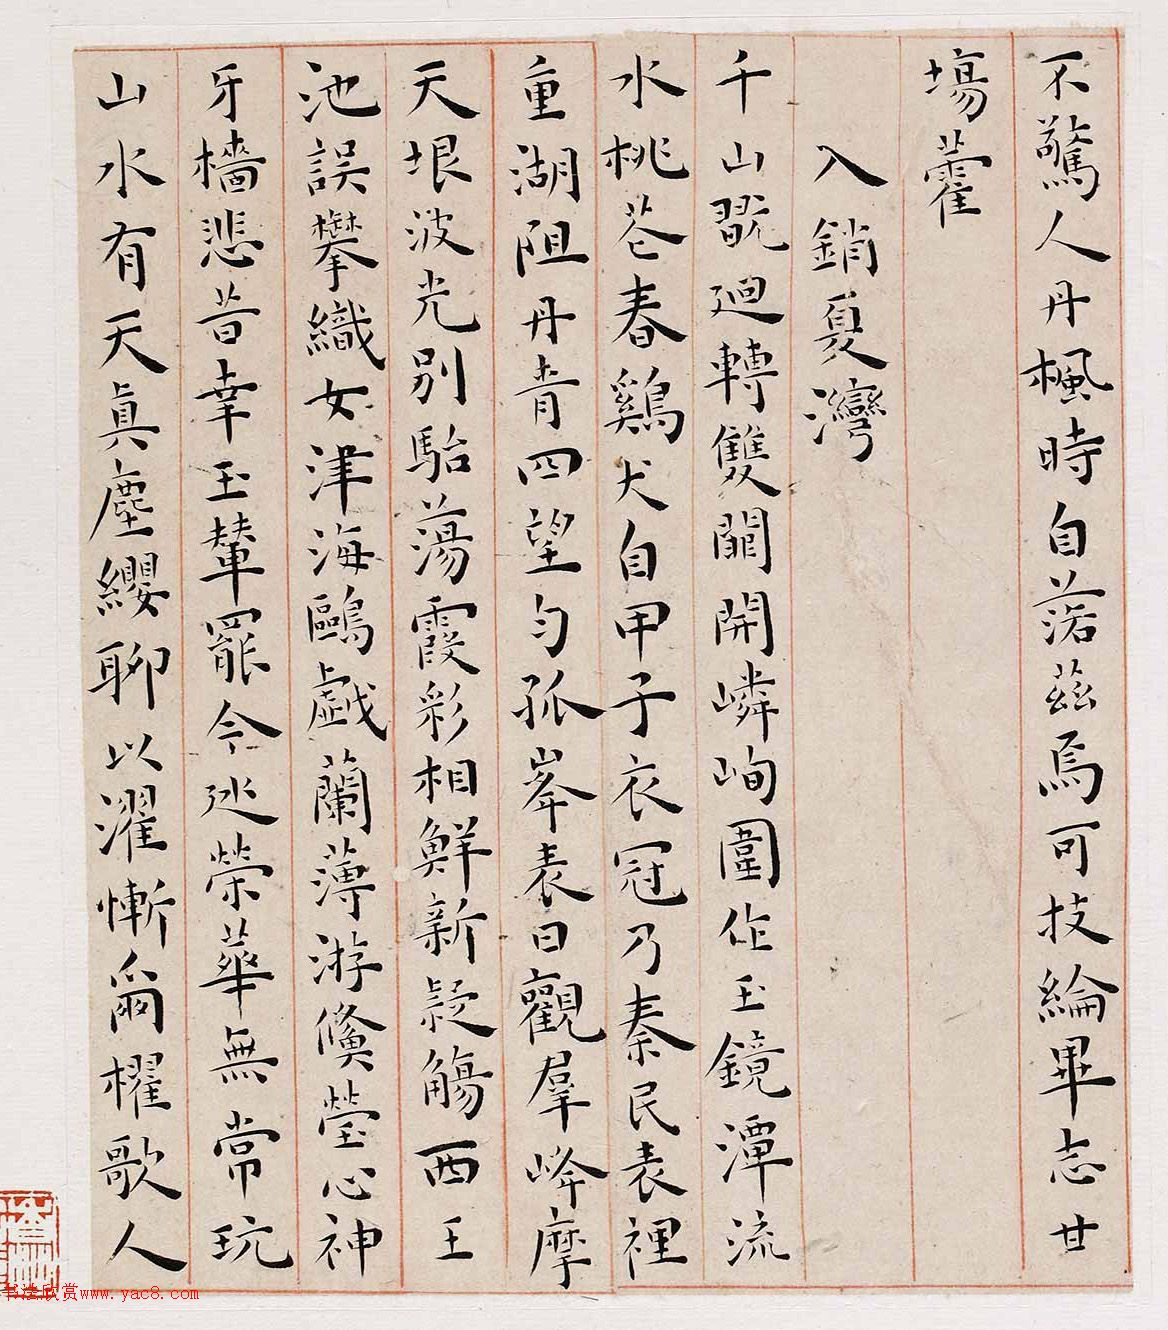 不驚人丹楓時自落茲焉可技綸畢志甘
場藿
入銷夏灣
千山翫迴轉雙關開嶙峋圍作玉鏡潭流
水桃花春鷄犬自甲子衣冠乃秦民表裡
重湖阻丹青四望勻孤峯表日觀羣峰摩
天垠波光別駘蕩霞彩相鮮新疑觴西王
池誤攀織女津海鷗戱蘭薄游鯈瑩心神
牙檣悲昔幸玉輦罷今巡榮華無常玩
山水有天眞塵纓聊以濯慚爾櫂歌人
书法欣赏www.yac8.com